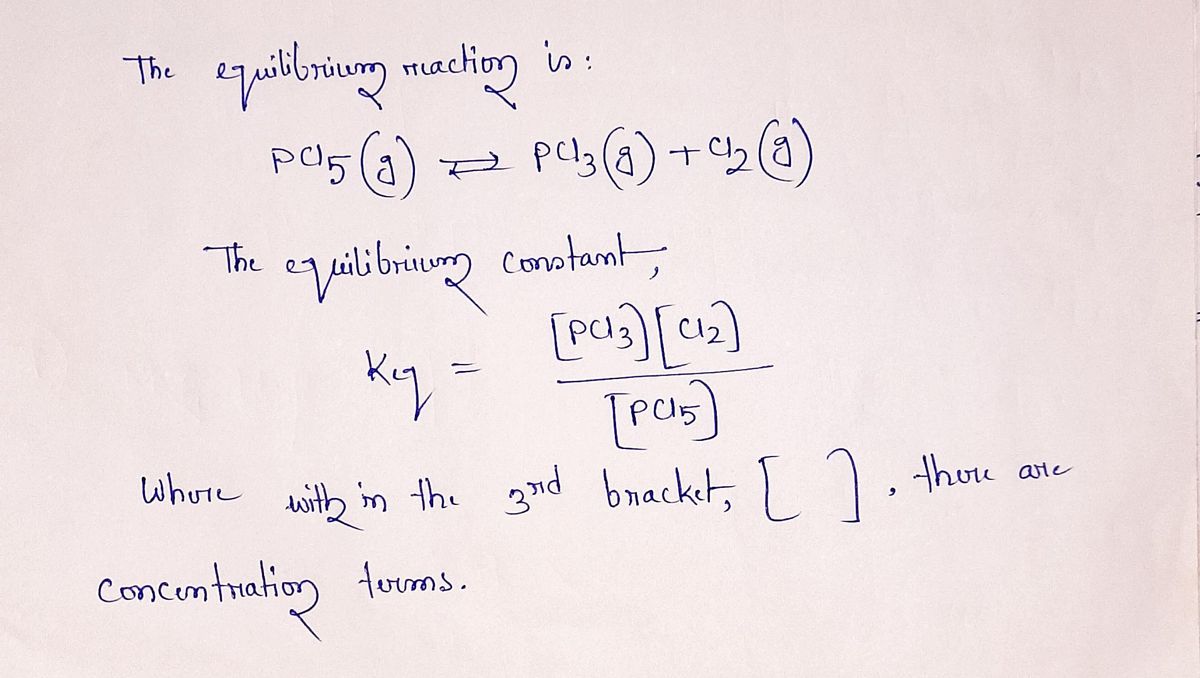 The equilibrium reaction is:
PCl5(g) ⇌ PCl3(g) + Cl2(g)
The equilibrium constant,
Keq = [PCl3][Cl2] / [PCl5]
Where with in the 3rd bracket, [ ], there are
concentration terms.